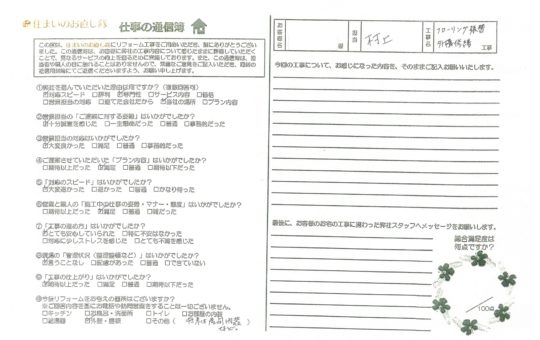 住まいのお直し隊
仕事の通信簿
この度は、住まいのお直し隊にリフォーム工事をご用命いただき、誠にありがとうござい
ました。この通信簿は、お客様に弊社の工事内容についてお感じいただいたままに評価していただく
ことで、更なるサービスの向上を図るために実施しております。
①弊社を選んでいただいた理由は何ですか?(複数回答可)
対応スピード □評判 専門性 □サービス内容 □価格
□営業担当の対応 □建てた会社だから 当社の場所 □プラン内容
②営業担当の「ご連絡に対する姿勢」はいかがでしたか?
十分誠意を感じた □一生懸命だった □普通 □事務的だった
③営業担当の対応はいかがでしたか?
大変良かった □満足 □普通 □事務的だった
④ご提案させていただいた「プラン内容」はいかがでしたか?
□期待以上だった 満足 □普通 □期待以下だった
⑤「対応のスピード」はいかがでしたか?
大変速かった □速かった □普通 □かなり待った
⑥監督と職人の「施工中の仕事の姿勢・マナー・態度」はいかがでしたか?
□期待以上だった 満足 □普通 □雑だった
⑦「工事の進め方」はいかがでしたか?
とても安心していられた □特に不安はなかった
□対応に少しストレスを感じた □とても不満を感じた
⑧現場の「管理状況(整理整頓など)」はいかがでしたか?
言うことなし □配慮があった □普通 □できていない
⑨「工事の仕上がり」はいかがでしたか?
□期待以上だった 満足 □普通 □期待以下だった
⑩今後リフォームをお考えの箇所はございますか?
□キッチン □お風呂・洗面所 □トイレ □お部屋の内装
□給湯器 外壁・屋根 □その他(
お客様名
村上
工事名
フローリング張替
外構修繕
工事
今回の工事について、お感じになった内容を、そのままご記入お願いいたします。
最後に、お客様のお名の工事に携わった弊社スタッフへメッセージをお願いします。
総合満足度は
何点ですか?
100点